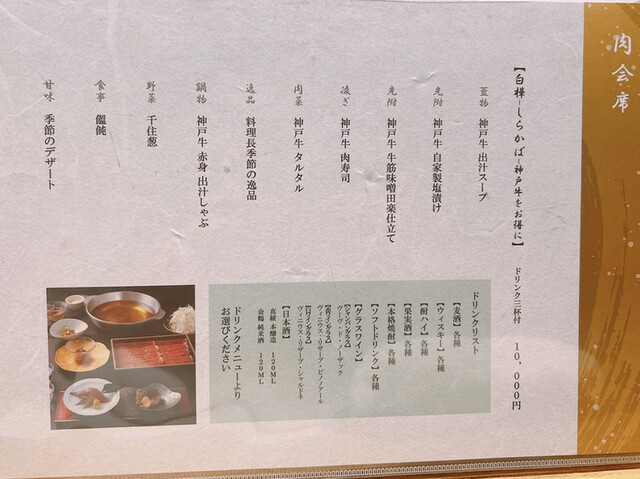 肉会席
【白樺―しらかば―神戸牛をお得に】 ドリンク三杯付 10,000円
蓋物 神戸牛 出汁スープ
先附 神戸牛 自家製塩漬け
先附 神戸牛 牛筋味噌田楽仕立て
凌ぎ 神戸牛 肉寿司
肉菜 神戸牛 タルタル
逸品 料理長季節の逸品
鍋物 神戸牛 赤身 出汁しゃぶ
野菜 千住葱
食事 饂飩
甘味 季節のデザート
ドリンクリスト
【麦酒】各種
【ウィスキー】各種
【酎ハイ】各種
【果実酒】各種
【本格焼酎】各種
【ソフトドリンク】各種
【グラスワイン】
【シャンパングラス】
ヴーヴ・ド・ノーザック
【赤ワイングラス】
ヴィニウス・リザーブ・ピノノアール
【白ワイングラス】
ヴィニウス・リザーブ・シャルドネ
【日本酒】
真稜 本醸造 120ML
金鶴 純米酒 120ML
ドリンクメニューより
お選びください